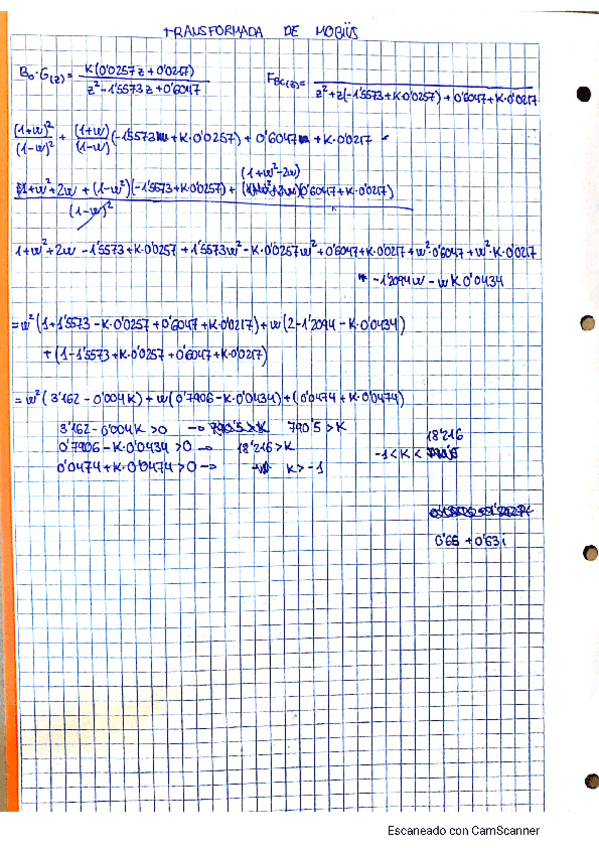 TRANSFORMADA DE MOBIÜS
B₀·G(z) = K(0'0257z + 0'0217) / z² - 1'5573z + 0'6047
F_BC(z) = / z² + z(-1'5573 + K·0'0257) + 0'6047 + K·0'0217
(1+w)² / (1-w)² + (1+w) / (1-w) (-1'5573 + K·0'0257) + 0'6047 + K·0'0217
(1+w²-2w)
1+w²+2w + (1-w²)(-1'5573 + K·0'0257) + (0'6047 + K·0'0217)
(1-w)²
1+w²+2w -1'5573 + K·0'0257 + 1'5573w² - K·0'0257w² + 0'6047 + K·0'0217 + w²·0'6047 + w²·K·0'0217
-1'2094w - wK0'0434
= w²(1 + 1'5573 - K·0'0257 + 0'6047 + K·0'0217) + w(2 - 1'2094 - K·0'0434)
+ (1 - 1'5573 + K·0'0257 + 0'6047 + K·0'0217)
= w²(3'162 - 0'004K) + w(0'7906 - K·0'0434) + (0'0474 + K·0'0474)
3'162 - 0'004K > 0 → 790'5 > K 790'5 > K
0'7906 - K·0'0434 > 0 → 18'216 > K
0'0474 + K·0'0474 > 0 → K > -1
18'216
-1 < K <
0'66 + 0'63i
Escaneado con CamScanner